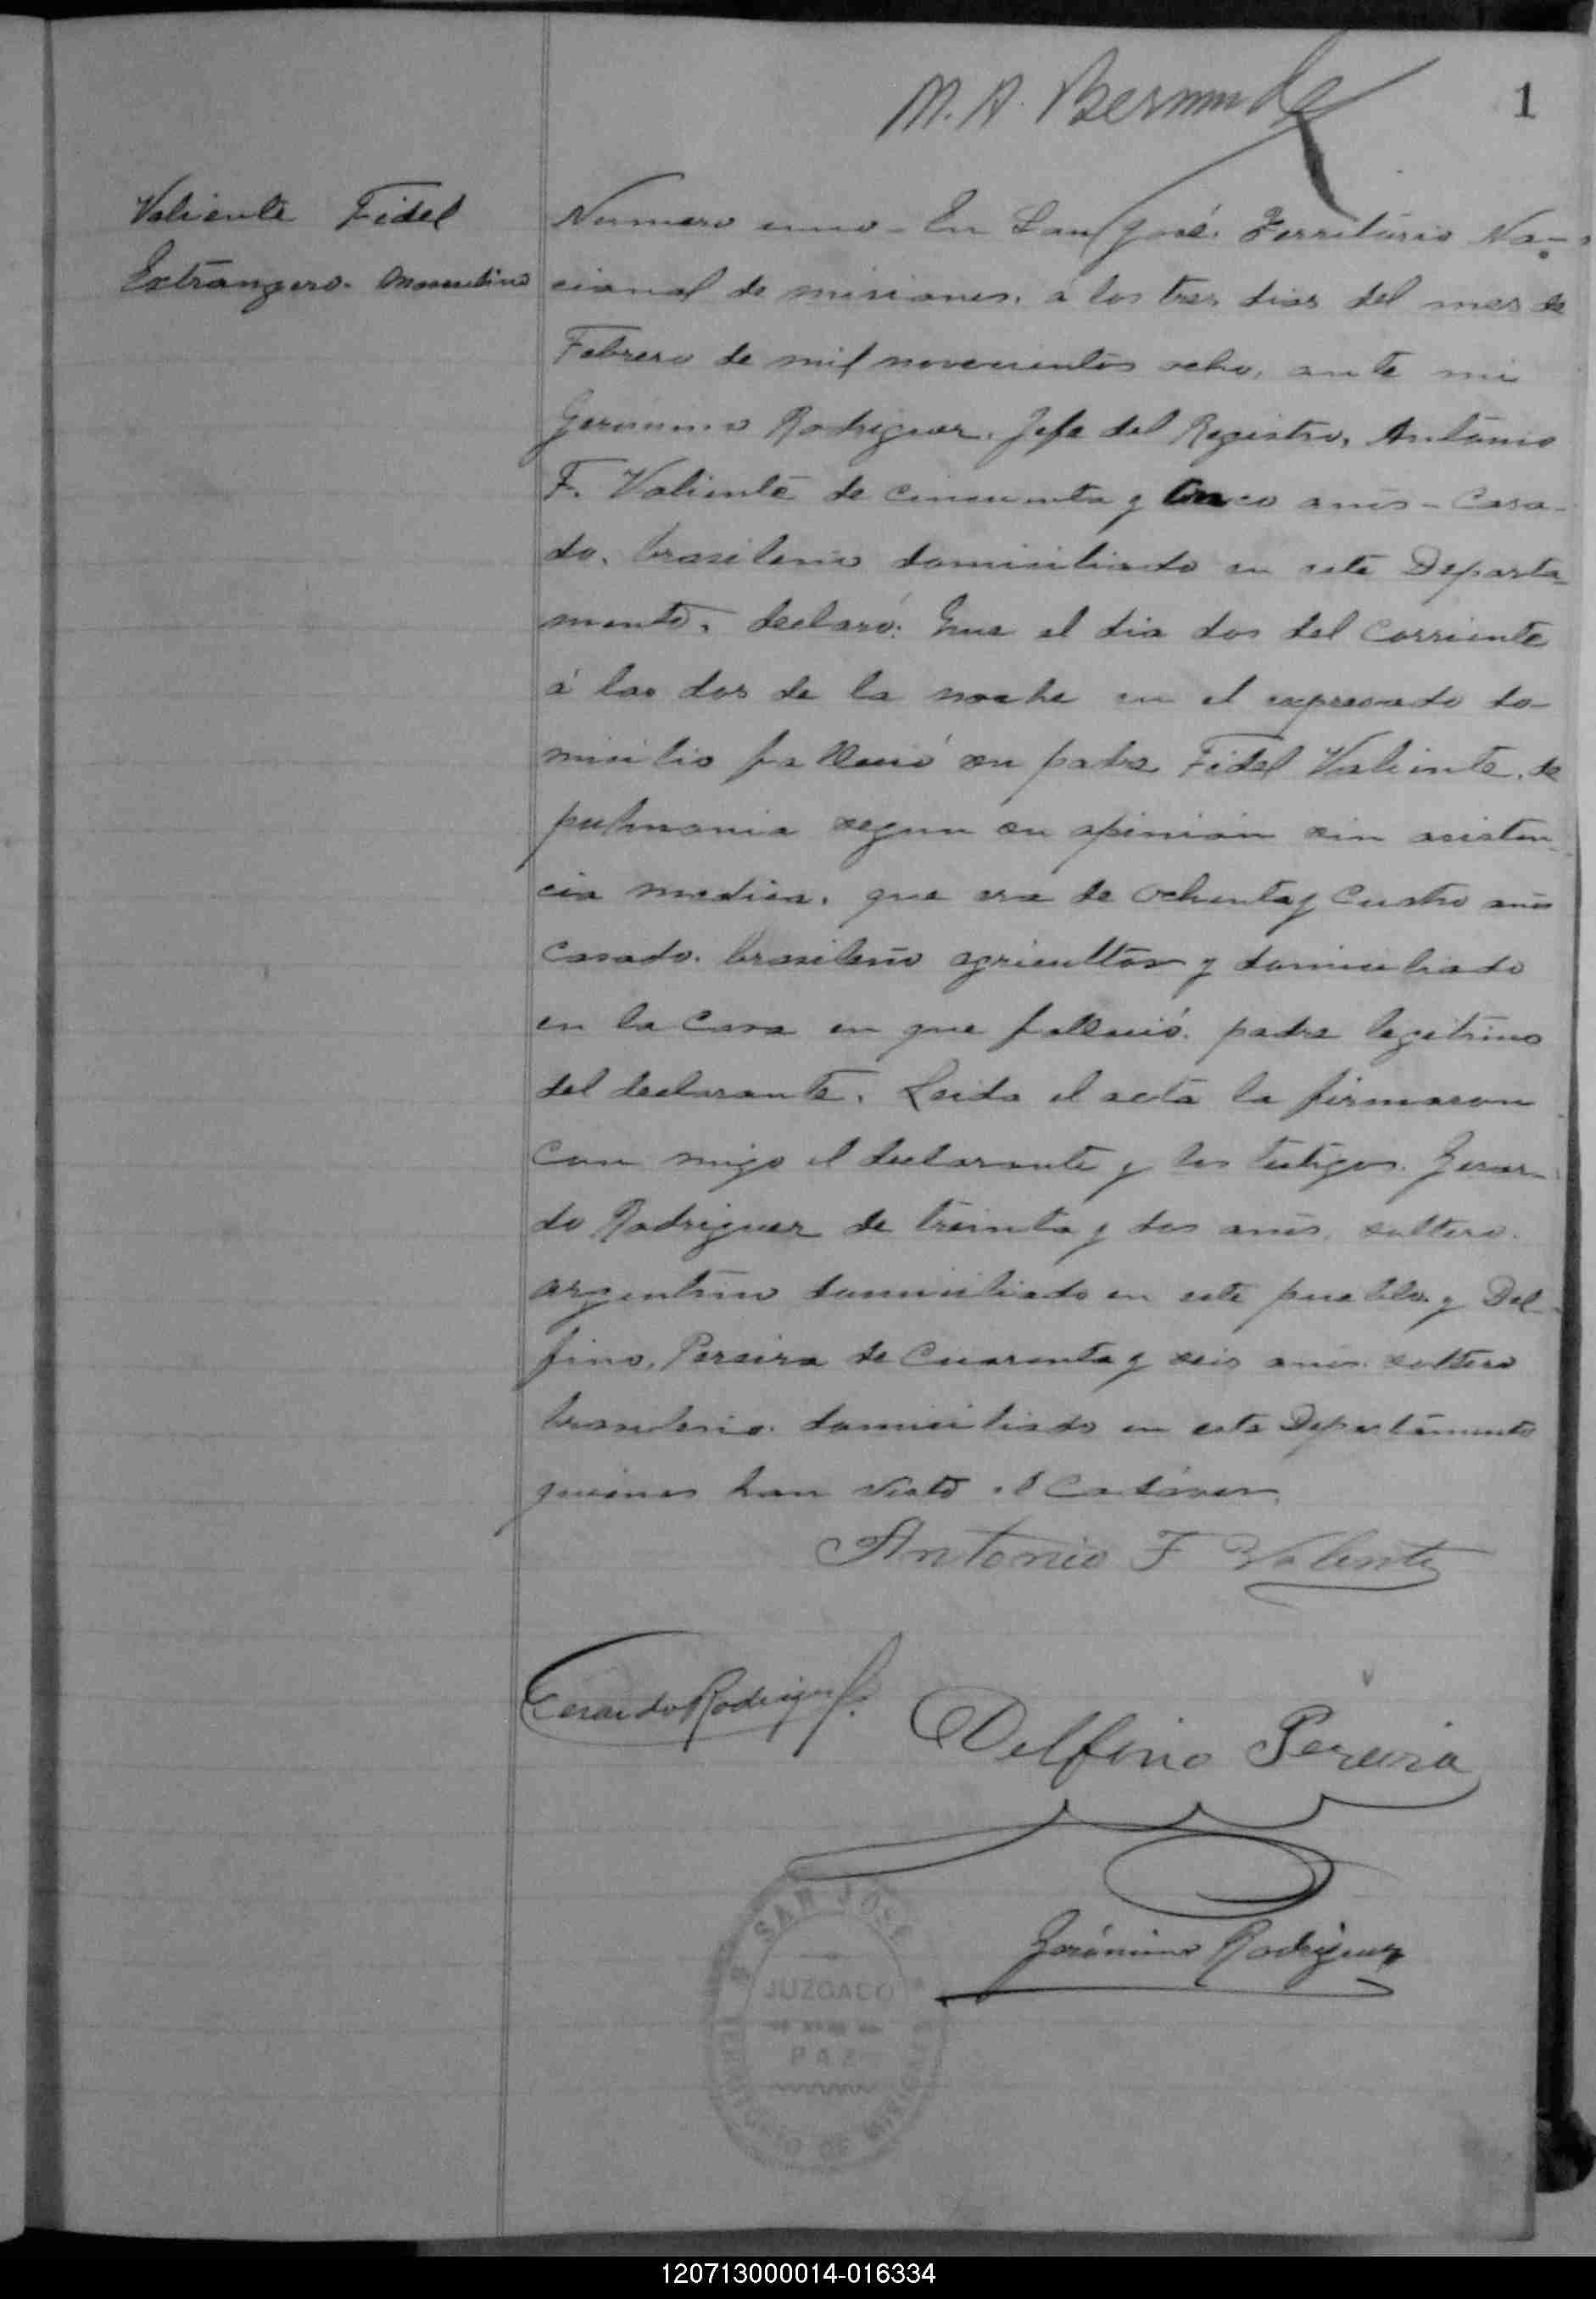 M. A. Bermudez
1
Valiente Fidel
Extrangero. Masculino
Numero uno - En San José. Territorio Na-
cional de misiones. á los tres dias del mes de
Febrero de mil novecientos ocho, ante mi
Geronimo Rodriguez. Jefe del Registro, Antonio
F. Valiente de cincuenta y cinco anõs - Casa-
do. brasileño domiciliado en este Departa-
mento, declaró: Que el dia dos del Corriente
á las dos de la noche en el expresado do-
micilio falleció su padre Fidel Valiente, de
pulmonia segun su opinión sin asisten-
cia medica, que era de Ochenta y Cuatro anõs
Casado. brasileño agricultor y domiciliado
en la Casa en que falleció. padre legitimo
del declarante. Leida el acta la firmaron
Con migo el declarante y los testigos. Gerar-
do Rodriguez de treinta y dos anõs, soltero.
argentino domiciliado en este pueblo y Del-
fino, Pereira de Cuarenta y seis anõs. soltero
brasileño. domiciliado en este Departamento
quienes han visto el Cadáver.
Antonio F Valente
Gerardo Rodriguez
Delfino Pereira
Gerónimo Rodriguez
SAN JOSE
JUZGADO
DE
PAZ
TERRITORIO DE MISIONES
120713000014-016334